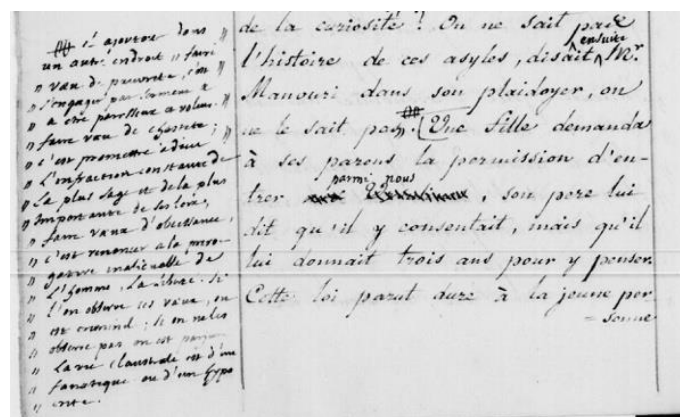 il ajoutait dans
un autre endroit " faire
" vœu de pauvreté, c'est
" s'engager par serment à
" a être paresseux et voleur.
" faire vœu de chasteté ;
" c'est promettre à dieu
" L'infraction constante de
" La plus sage et de la plus
" importante de ses loix,
" faire vœu d'obéissance,
" c'est renoncer a la prero-
" gative inaliénable de
" L'homme, La liberté. Si
" l'on observe ces vœux, on
" est criminel ; si on ne les
" observe pas on est parjure
" La vie claustrale est d'un
" fanatique ou d'un hypo
" crite.
de la curiosité ? On ne sait pas
l'histoire de ces asyles, disait ensuite Mr.
Manouri dans son plaidoyer, on
ne le sait pas. Une fille demanda
à ses parens la permission d'en-
trer parmi nous, son pere lui
dit qu'il y consentait, mais qu'il
lui donnait trois ans pour y penser.
Cette loi parut dure à la jeune per-
= sonne